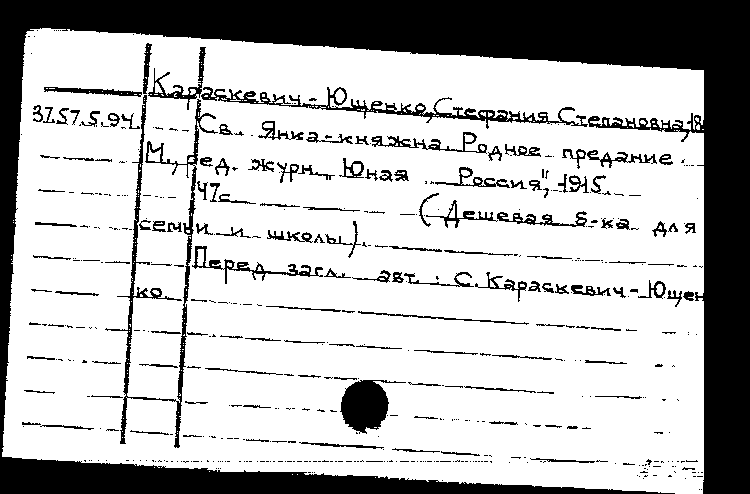 Караскевич-Ющенко, Стефания Степановна, 18
37.57.5.94. Св. Янка-княжна. Родное предание.
М., ред. журн. „Юная Россия", 1915.
47с. (Дешевая б-ка для
семьи и школы).
Перед загл. авт.: С. Караскевич-Ющен
ко.